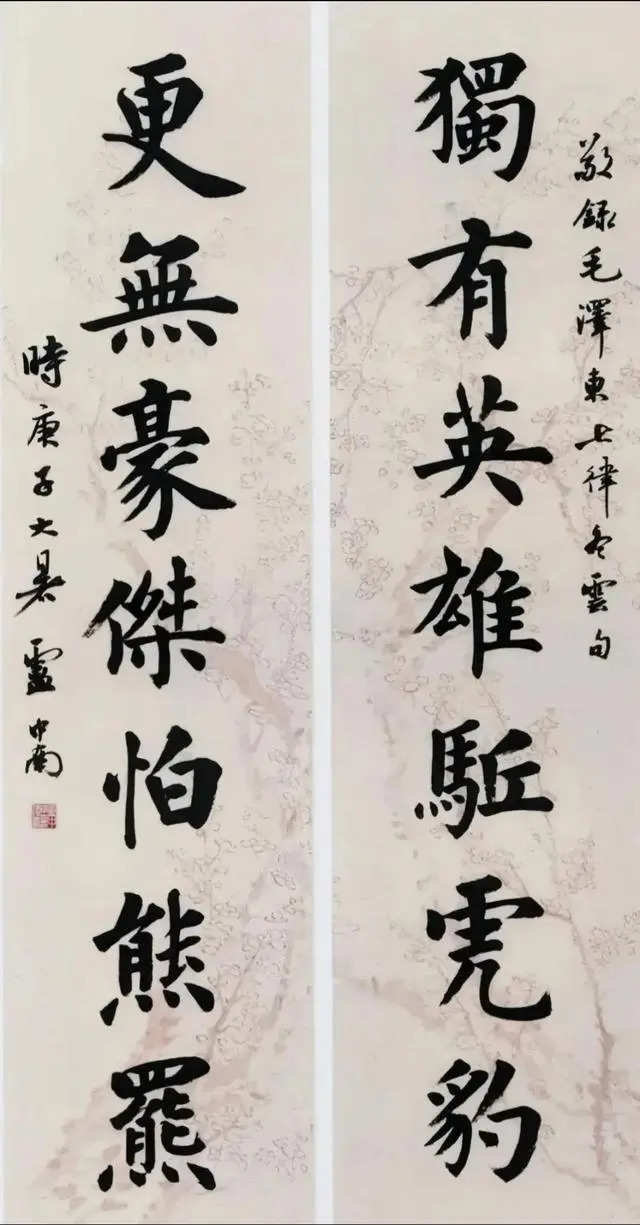 敬録毛澤東七律冬雲句
獨有英雄駈虎豹
更無豪傑怕熊羆
時庚子大暑盧中南